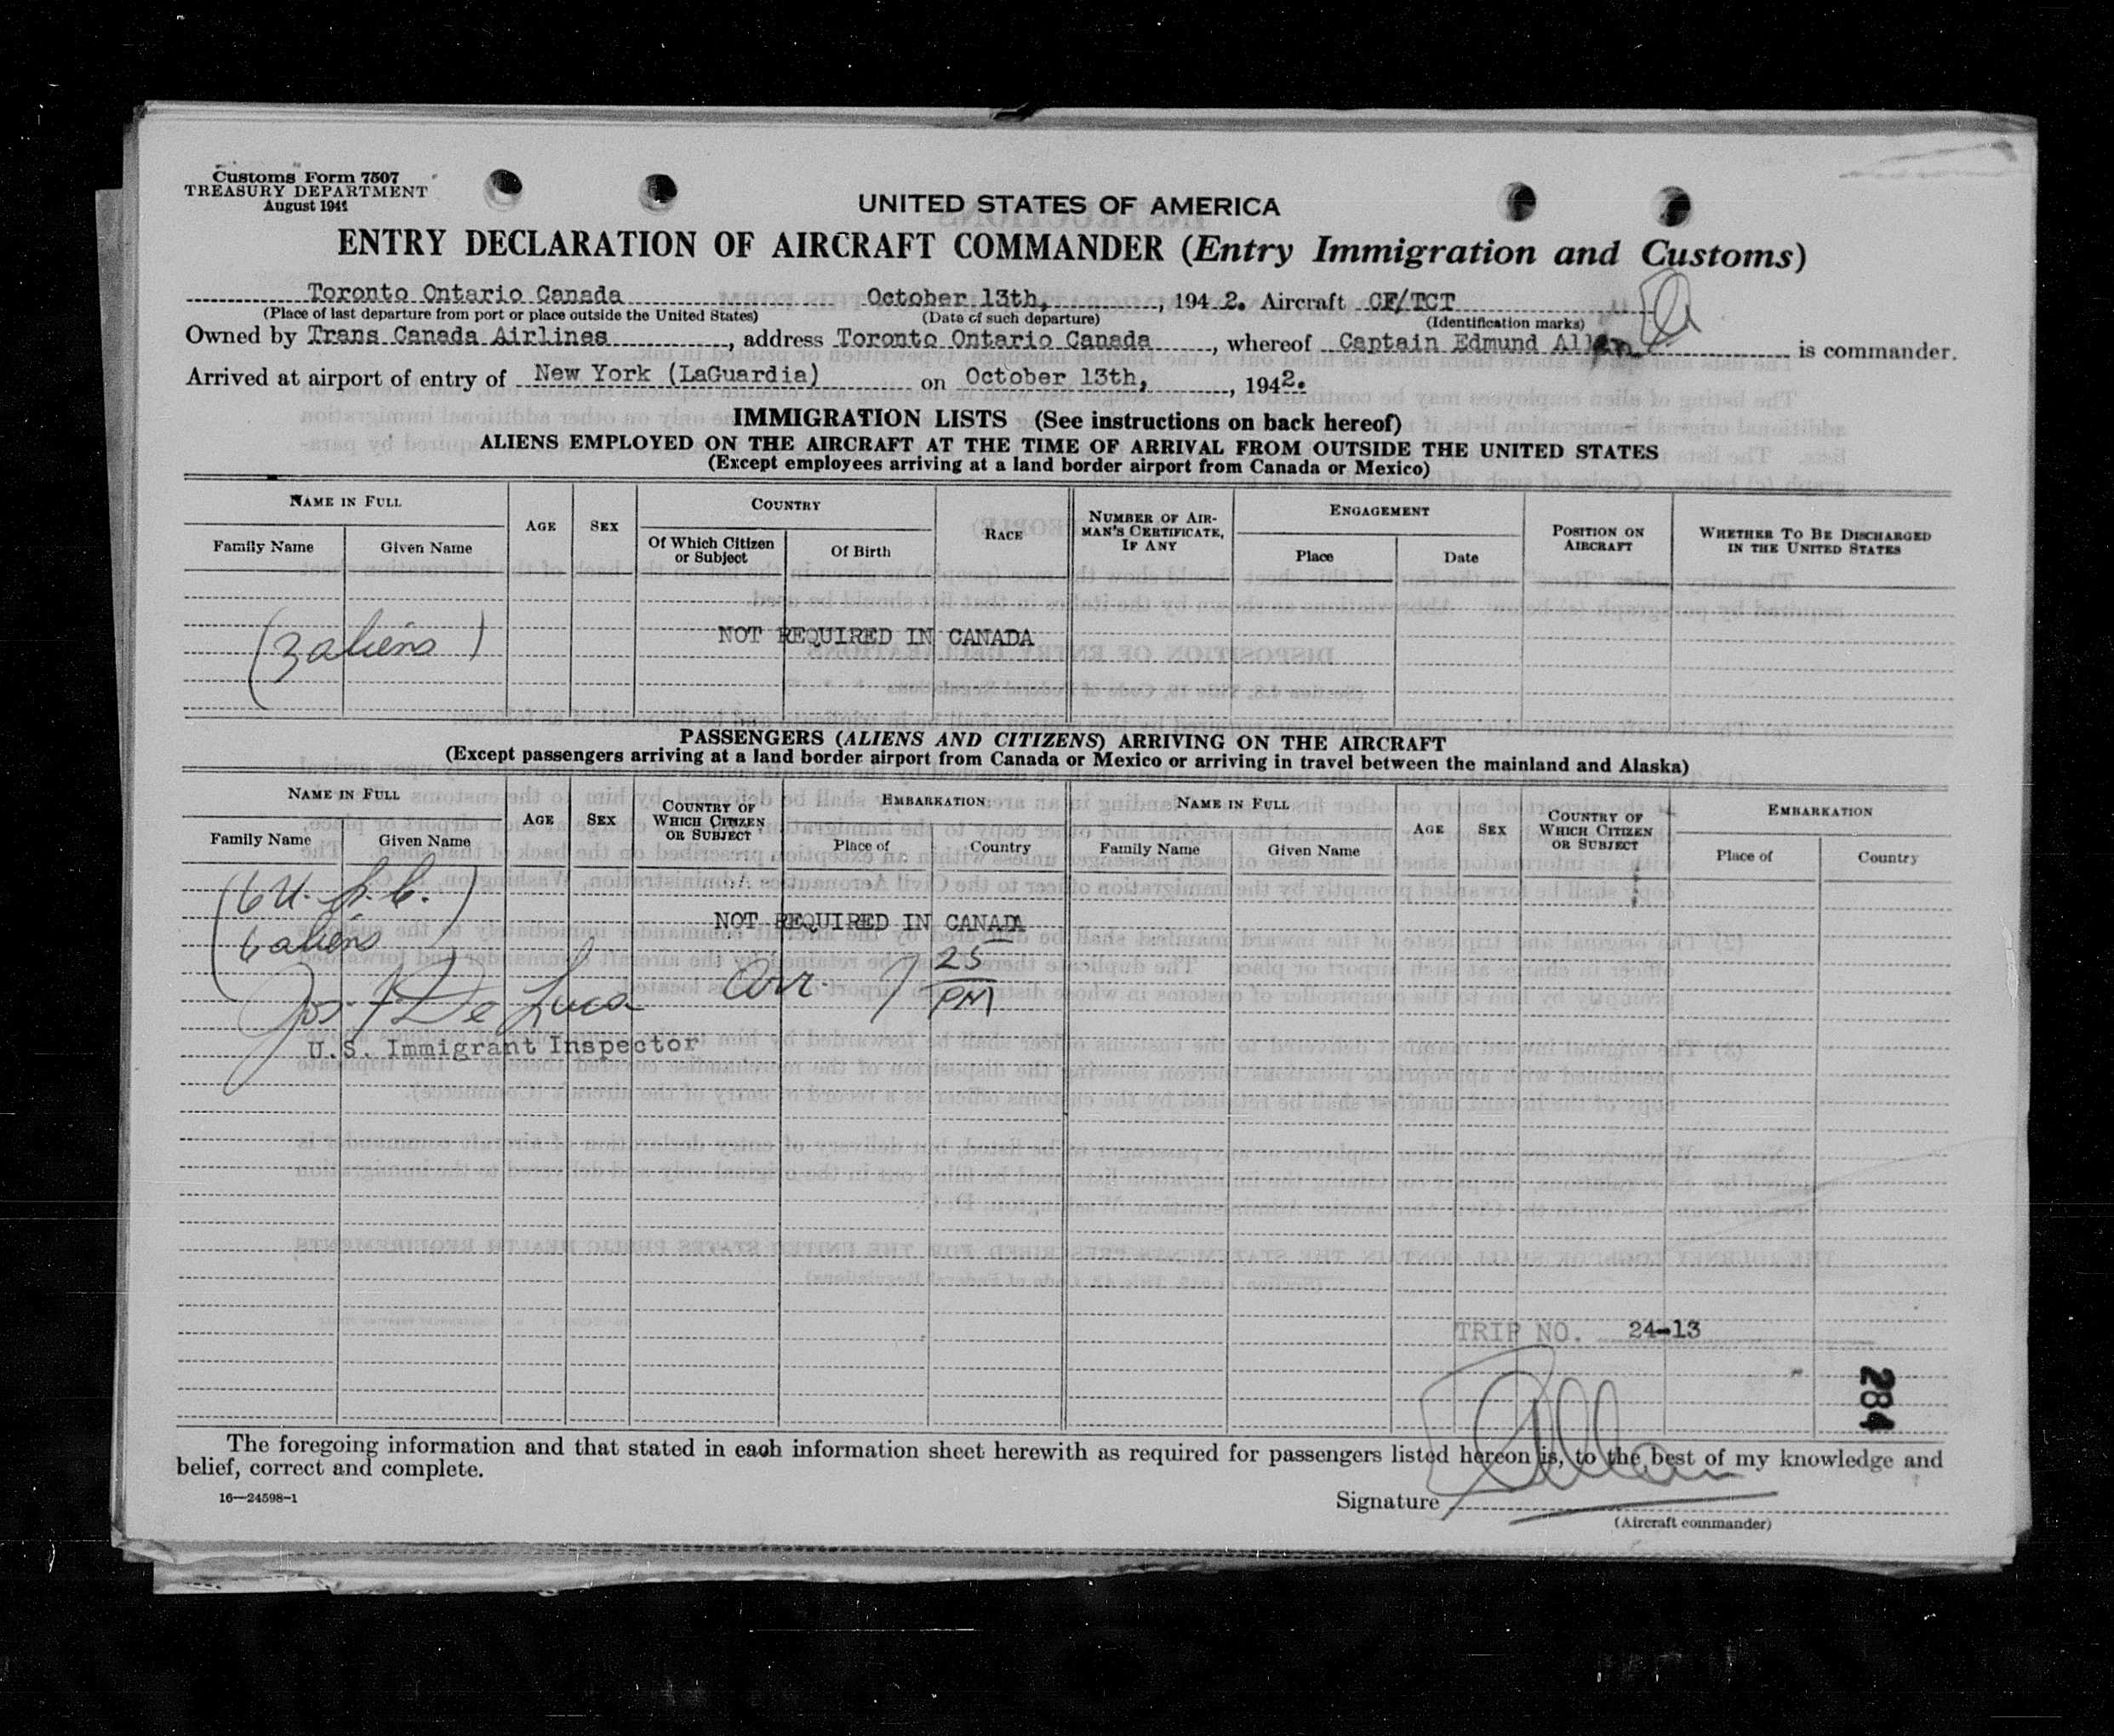 Customs Form 7507
TREASURY DEPARTMENT
August 1941
UNITED STATES OF AMERICA
ENTRY DECLARATION OF AIRCRAFT COMMANDER (Entry Immigration and Customs)
Toronto Ontario Canada October 13th, , 194 2. Aircraft CF/TCT
(Place of last departure from port or place outside the United States) (Date of such departure) (Identification marks)
Owned by Trans Canada Airlines , address Toronto Ontario Canada , whereof Captain Edmund Allen is commander.
Arrived at airport of entry of New York (LaGuardia) on October 13th, , 1942.
IMMIGRATION LISTS (See instructions on back hereof)
ALIENS EMPLOYED ON THE AIRCRAFT AT THE TIME OF ARRIVAL FROM OUTSIDE THE UNITED STATES
(Except employees arriving at a land border airport from Canada or Mexico)
NAME IN FULL AGE SEX COUNTRY RACE NUMBER OF AIRMAN'S CERTIFICATE, IF ANY ENGAGEMENT POSITION ON AIRCRAFT WHETHER TO BE DISCHARGED IN THE UNITED STATES
Family Name Given Name Of Which Citizen or Subject Of Birth Place Date
(3 aliens) NOT REQUIRED IN CANADA
PASSENGERS (ALIENS AND CITIZENS) ARRIVING ON THE AIRCRAFT
(Except passengers arriving at a land border airport from Canada or Mexico or arriving in travel between the mainland and Alaska)
NAME IN FULL AGE SEX COUNTRY OF WHICH CITIZEN OR SUBJECT EMBARKATION NAME IN FULL AGE SEX COUNTRY OF WHICH CITIZEN OR SUBJECT EMBARKATION
Family Name Given Name Place of Country Family Name Given Name Place of Country
(6 U.S.C.)
NOT REQUIRED IN CANADA
6 aliens
Jos. F De Luca Arr. 7 25 PM
U.S. Immigrant Inspector
TRIP NO. 24-13
284
The foregoing information and that stated in each information sheet herewith as required for passengers listed hereon is, to the best of my knowledge and
belief, correct and complete.
16—24598-1
Signature
(Aircraft commander)